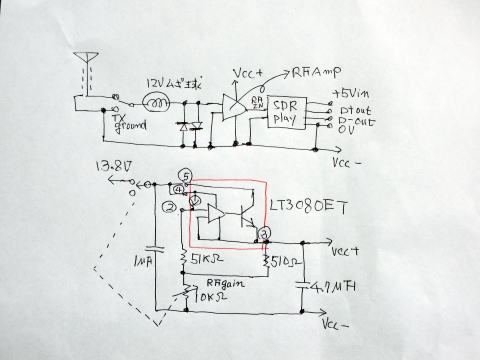 12Vムギ球
Vcc+
RFAmp
RF IN
SDR play
+5Vin
D+out
D-out
0V
TX ground
Vcc-
13.8V
⑤
④
②
③
LT3080ET
Vcc+
1μH
51KΩ
510Ω
4.7μH
RFgain
10KΩ
Vcc-